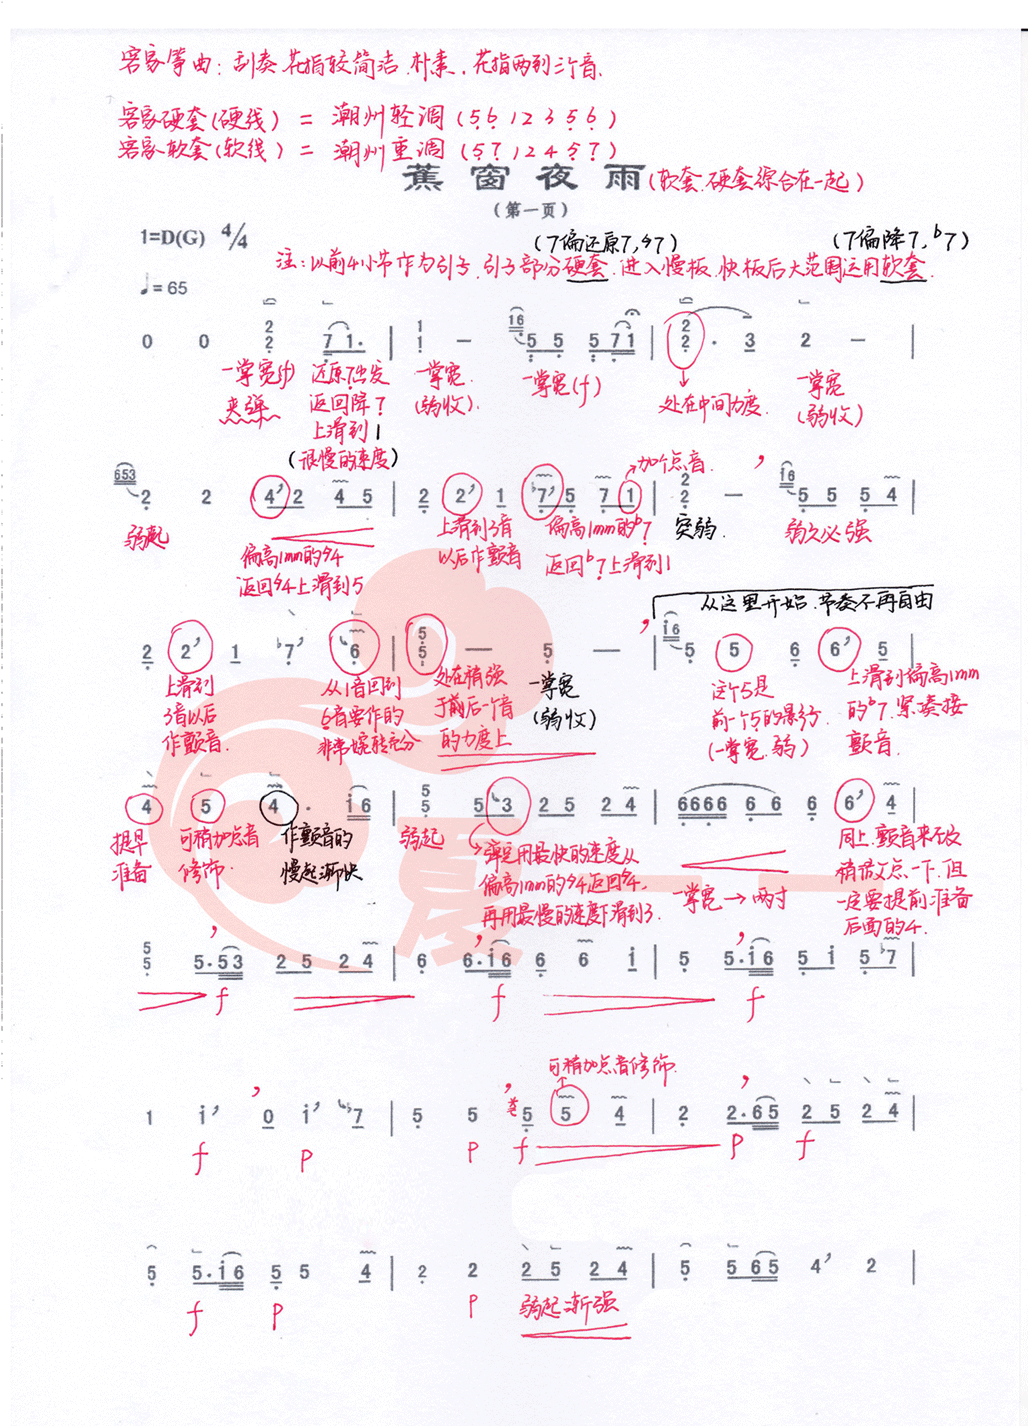 客家筝曲：刮奏、花指较简洁、朴素，花指两到三个音.
客家硬套(硬线) = 潮州轻调 (5̣ 6̣ 1 2 3 5̣ 6̣)
客家软套(软线) = 潮州重调 (5̣ 7̣ 1 2 4 5̣ 7̣)
蕉窗夜雨(软套、硬套综合在一起)
(第一页)
1=D(G) 4/4
(7偏还原7,♮7) (7偏降7,♭7)
注：以前4小节作为引子，引子部分硬套，进入慢板、快板后大范围运用软套.
♩=65
0 0 2 2 7 1. | 1 1 — 16 5 5 5 7 1 | 2 2 . 3 2 — |
一掌宽(f) 还原7出发 一掌宽. 一掌宽(f) 处在中间力度. 一掌宽
夹弹 返回降7 (弱收). (弱收)
上滑到1
(很慢的速度)
加个点音.
653 2 2 4 2 4 5 | 2 2 1 ♭7 5 7 1 | 2 2 — i6 5 5 5 4 |
弱起 上滑到3音 偏高1mm的♭7 突弱. 弱久必强
偏高1mm的♮4 以后作颤音 返回♭7上滑到1
返回♮4上滑到5
从这里开始，节奏不再自由
2 2 1 ♭7 6 | 5 5 — 5 — | i6 5 5 6 6 5
上滑到 从1音回到 处在稍强 一掌宽 这个5是 上滑到偏高1mm
3音以后 6音要作的 于前后一个音 (弱收) 前一个5的影子 的♭7,紧凑接
作颤音. 非常婉转充分 的力度上 (一掌宽、弱) 颤音.
4 5 4 . i6 | 5 5 5 3 2 5 2 4 | 6666 6 6 6 6 4
提早 可稍加点音 作颤音的 弱起 弹完用最快的速度从 同上，颤音来不及
准备 修饰. 慢起渐快 偏高1mm的♮4返回♮4, 稍微点一下，但
再用最慢的速度下滑到3. 一掌宽→两寸 一定要提前准备
后面的4.
5 5 5.53 25 24 | 6 6.i6 6 6 i | 5 5.i6 5 i 5 ♭7 |
f f f
可稍加点音修饰.
1 i 0 i ♭7 | 5 5 5 5 4 | 2 2.65 25 24 |
f p p f p f
5 5.i6 5 5 4 | 2 2 2 5 2 4 | 5 5 65 4 2 |
f p p 弱起渐强
夏